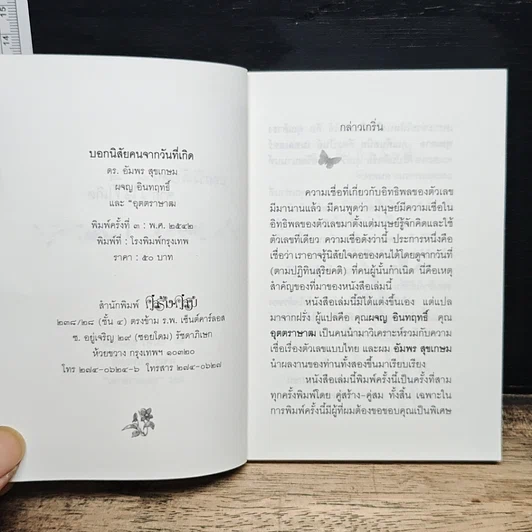 14
15
บอกนิสัยคนจากวันที่เกิด
ดร. อัมพร สุขเกษม
ผจญ อินทฤทธิ์
และ "อุตตราษาฒ
พิมพ์ครั้งที่ ๓ : พ.ศ. ๒๕๔๒
พิมพ์ที่ : โรงพิมพ์กรุงเทพ
ราคา : ๕๐ บาท
สำนักพิมพ์
๒๓๘/๒๘ (ชั้น ๔) ตรงข้าม ร.พ. เซ็นต์คาร์ลอส
ซ. อยู่เจริญ ๒๙ (ซอยโดม) รัชดาภิเษก
ห้วยขวาง กรุงเทพฯ ๑๐๓๒๐
โทร ๒๗๔-๐๖๒๔-๖ โทรสาร ๒๗๔-๐๖๒๗
กล่าวเกริ่น
ความเชื่อที่เกี่ยวกับอิทธิพลของตัวเลข
มีมานานแล้ว มีคนพูดว่า มนุษย์มีความเชื่อใน
อิทธิพลของตัวเลขมาตั้งแต่มนุษย์รู้จักคิดและใช้
ตัวเลขทีเดียว ความเชื่อดังว่านี้ ประการหนึ่งคือ
เชื่อว่า เราอาจรู้นิสัยใจคอของคนได้โดยดูจากวันที่
(ตามปฏิทินสุริยคติ) ที่คนผู้นั้นกำเนิด นี่คือเหตุ
สำคัญของที่มาของหนังสือเล่มนี้
หนังสือเล่มนี้มิได้แต่งขึ้นเอง แต่แปล
มาจากฝรั่ง ผู้แปลคือ คุณผจญ อินทฤทธิ์ คุณ
อุตตราษาฒ เป็นคนนำมาวิเคราะห์รวมกับความ
เชื่อเรื่องตัวเลขแบบไทย และผม อัมพร สุขเกษม
นำผลงานของท่านทั้งสองขึ้นมาเรียบเรียง
หนังสือเล่มนี้พิมพ์ครั้งนี้เป็นครั้งที่สาม
ทุกครั้งพิมพ์โดย คู่สร้าง-คู่สม ทั้งสิ้น เฉพาะใน
การพิมพ์ครั้งนี้มีผู้ที่ผมต้องขอขอบคุณเป็นพิเศษ